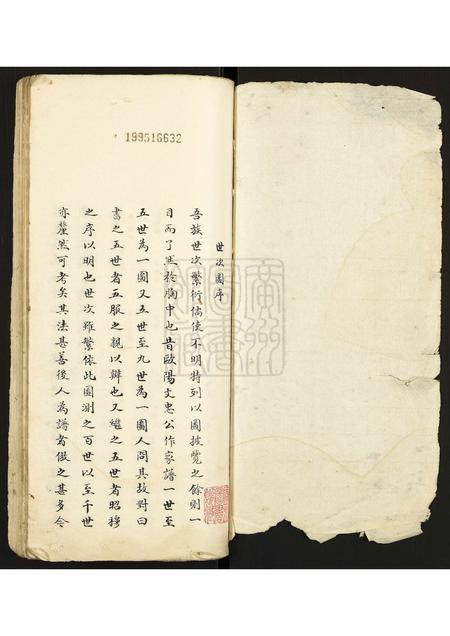 199516632
世次圖序
吾族世次繁衍倘使不明特列以圖披覽之餘則一
目而了然於胸中也昔歐陽文忠公作家譜一世至
五世為一圖又五世至九世為一圖人問其故對曰
書之五世者五服之親以辨也又繼之五世者昭穆
之序以明也世次雖繁依此圖測之百世以至千世
亦釐然可考矣其法甚善後人為譜者倣之甚多今